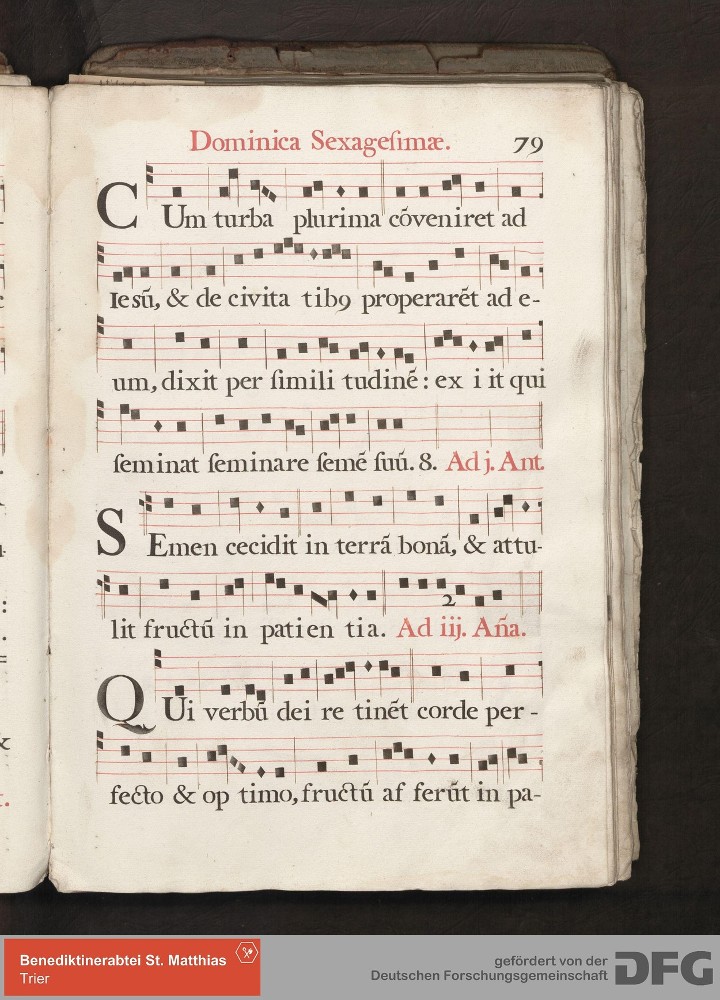 Dominica Sexageſimæ. 79
CUm turba plurima cōveniret ad
Iesū, & de civita tib9 properarēt ad e-
um, dixit per ſimili tudinē: ex i it qui
ſeminat ſeminare ſemē ſuū. 8. Ad j. Ant.
SEmen cecidit in terrā bonā, & attu-
lit fructū in patien tia. Ad iij. Aña.
2
QUi verbū dei re tinēt corde per-
fecto & op timo, fructū af ferūt in pa-
Benediktinerabtei St. Matthias
Trier
gefördert von der
Deutschen Forschungsgemeinschaft DFG